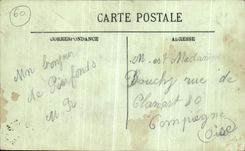 60
CARTE POSTALE
CORRESPONDANCE
ADRESSE
Mon bonjour
de Pierrefonds
M. et Madame
Bouchy rue de
Clamart 80
Compiègne
Oise